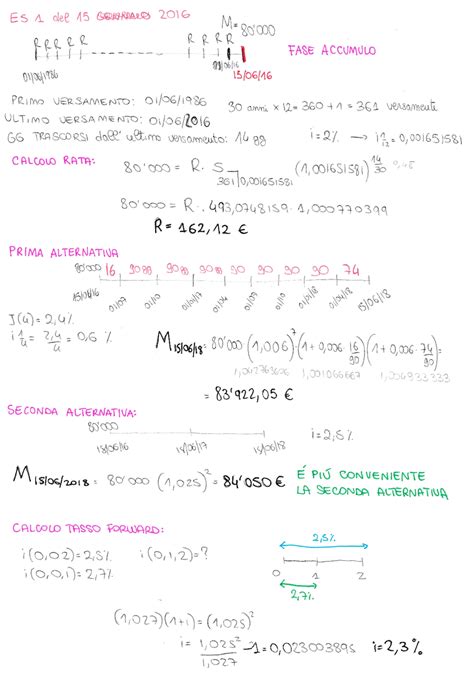 ES 1 del 15 2016
M = 80'000
R R R R R R R R R
FASE ACCUMULO
01/06/1986 01/06/16 15/06/16
PRIMO VERSAMENTO: 01/06/1986 30 anni × 12 = 360 + 1 = 361 versamenti
ULTIMO VERSAMENTO: 01/06/2016
GG TRASCORSI dall' ultimo versamento: 14 gg i = 2% → i 1/12 = 0,001651581
CALCOLO RATA:
80'000 = R · S 361⌉0,001651581 (1,001651581)^14/30
80'000 = R · 493,0748159 · 1,000770399
R = 162,12 €
PRIMA ALTERNATIVA
80'000 16 90gg 90gg 90gg 90 90 90 90 74
15/06/16 01/07 01/10 01/01/17 01/04 01/07 01/10 01/01/18 01/04/18 15/06/18
J(4) = 2,4%
i 1/4 = 2,4/4 = 0,6 %
M 15/06/18 = 80'000 (1,006)^7 (1 + 0,006 · 16/90) (1 + 0,006 · 74/90)
1,042763606 1,001066667 1,004933333
= 83'922,05 €
SECONDA ALTERNATIVA:
80'000
15/06/16 15/06/17 15/06/18 i = 2,5%
M 15/06/2018 = 80'000 (1,025)^2 = 84'050 €
É PIÚ CONVENIENTE
LA SECONDA ALTERNATIVA
CALCOLO TASSO FORWARD:
i(0,0,2) = 2,5% i(0,1,2) = ?
i(0,0,1) = 2,7%
2,5%
0 1 2
2,7%
(1,027)(1+i) = (1,025)^2
i = 1,025^2/1,027 - 1 = 0,023003895 i = 2,3%